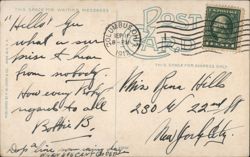 THIS SPACE FOR WRITING MESSAGES
"Hello" Gu
what a sur
prise to hear
from nobody.
How every body
regards to all
Bobbie B
Drop a line
POST
CARD
COLUMBUS, OHIO
SEP
1913
THIS SPACE FOR ADDRESS ONLY
Miss Rena Hills
230 W 22nd St
New York City